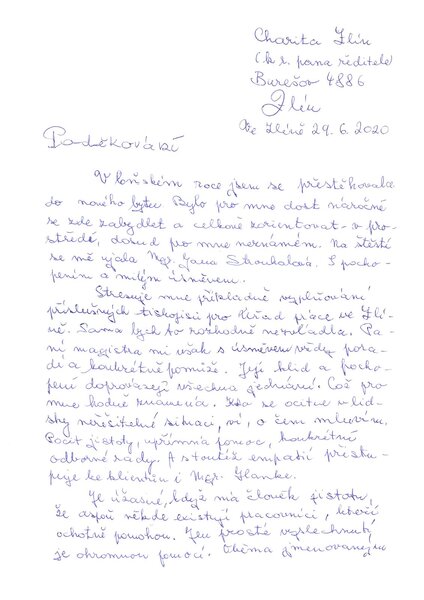 Charita Zlín
(k r. pana ředitele)
Burešov 4886
Zlín
Ve Zlíně 29. 6. 2020
Poděkování
V loňském roce jsem se přestěhovala
do nového bytu. Bylo pro mne dost náročné
se zde zabydlet a celkově zorientovat v pro-
středí, dosud pro mne neznámém. Na štěstí
se mě ujala Mgr. Jana Strouhalová. S pocho-
pením a milým úsměvem.
Stresuje mne příkladně vyplňování
příslušných tiskopisů pro Úřad práce ve Zlí-
ně. Sama bych to rozhodně nezvládla. Pa-
ní magistra mi však s úsměvem vždy pora-
dí a konkrétně pomůže. Její klid a pocho-
pení doprovázejí všechna jednání. Což pro
mne hodně znamená. Kdo se ocitne v lid-
sky neřešitelné situaci, ví, o čem mluvím.
Pocit jistoty, upřímná pomoc, konkrétní
odborné rady. A s toutéž empatií přistu-
puje ke klientům i Mgr.
Je úžasné, když má člověk jistotu,
že aspoň někde existují pracovníci, kteří
ochotně pomohou. Jen prosté vyslechnutí
je ohromnou pomocí. Oběma jmenovaným